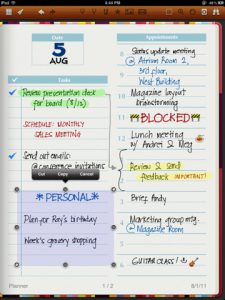 iPad
8:44 PM
Date
5
AUG
Tasks
Review presentation deck
for board (8/15)
SCHEDULE: MONTHLY
SALES MEETING
Send out emails:
@conference invitations
Cut
Copy
Cancel
*PERSONAL*
Plan for Ray's birthday
Week's grocery shopping
Appointments
8 Status update meeting
@ Atrium Room 2,
9 3rd floor,
West Building
10 Magazine layout
brainstorming
11 !!!BLOCKED!!!
12 Lunch meeting
1 w/ Andrei & Meg
2 Review & send
feedback IMPORTANT!
3 Brief Andy
4 Marketing group mtg.
@ Magazine Room
5
6 GUITAR CLASS!
Planner
1 / 2
8/1/11